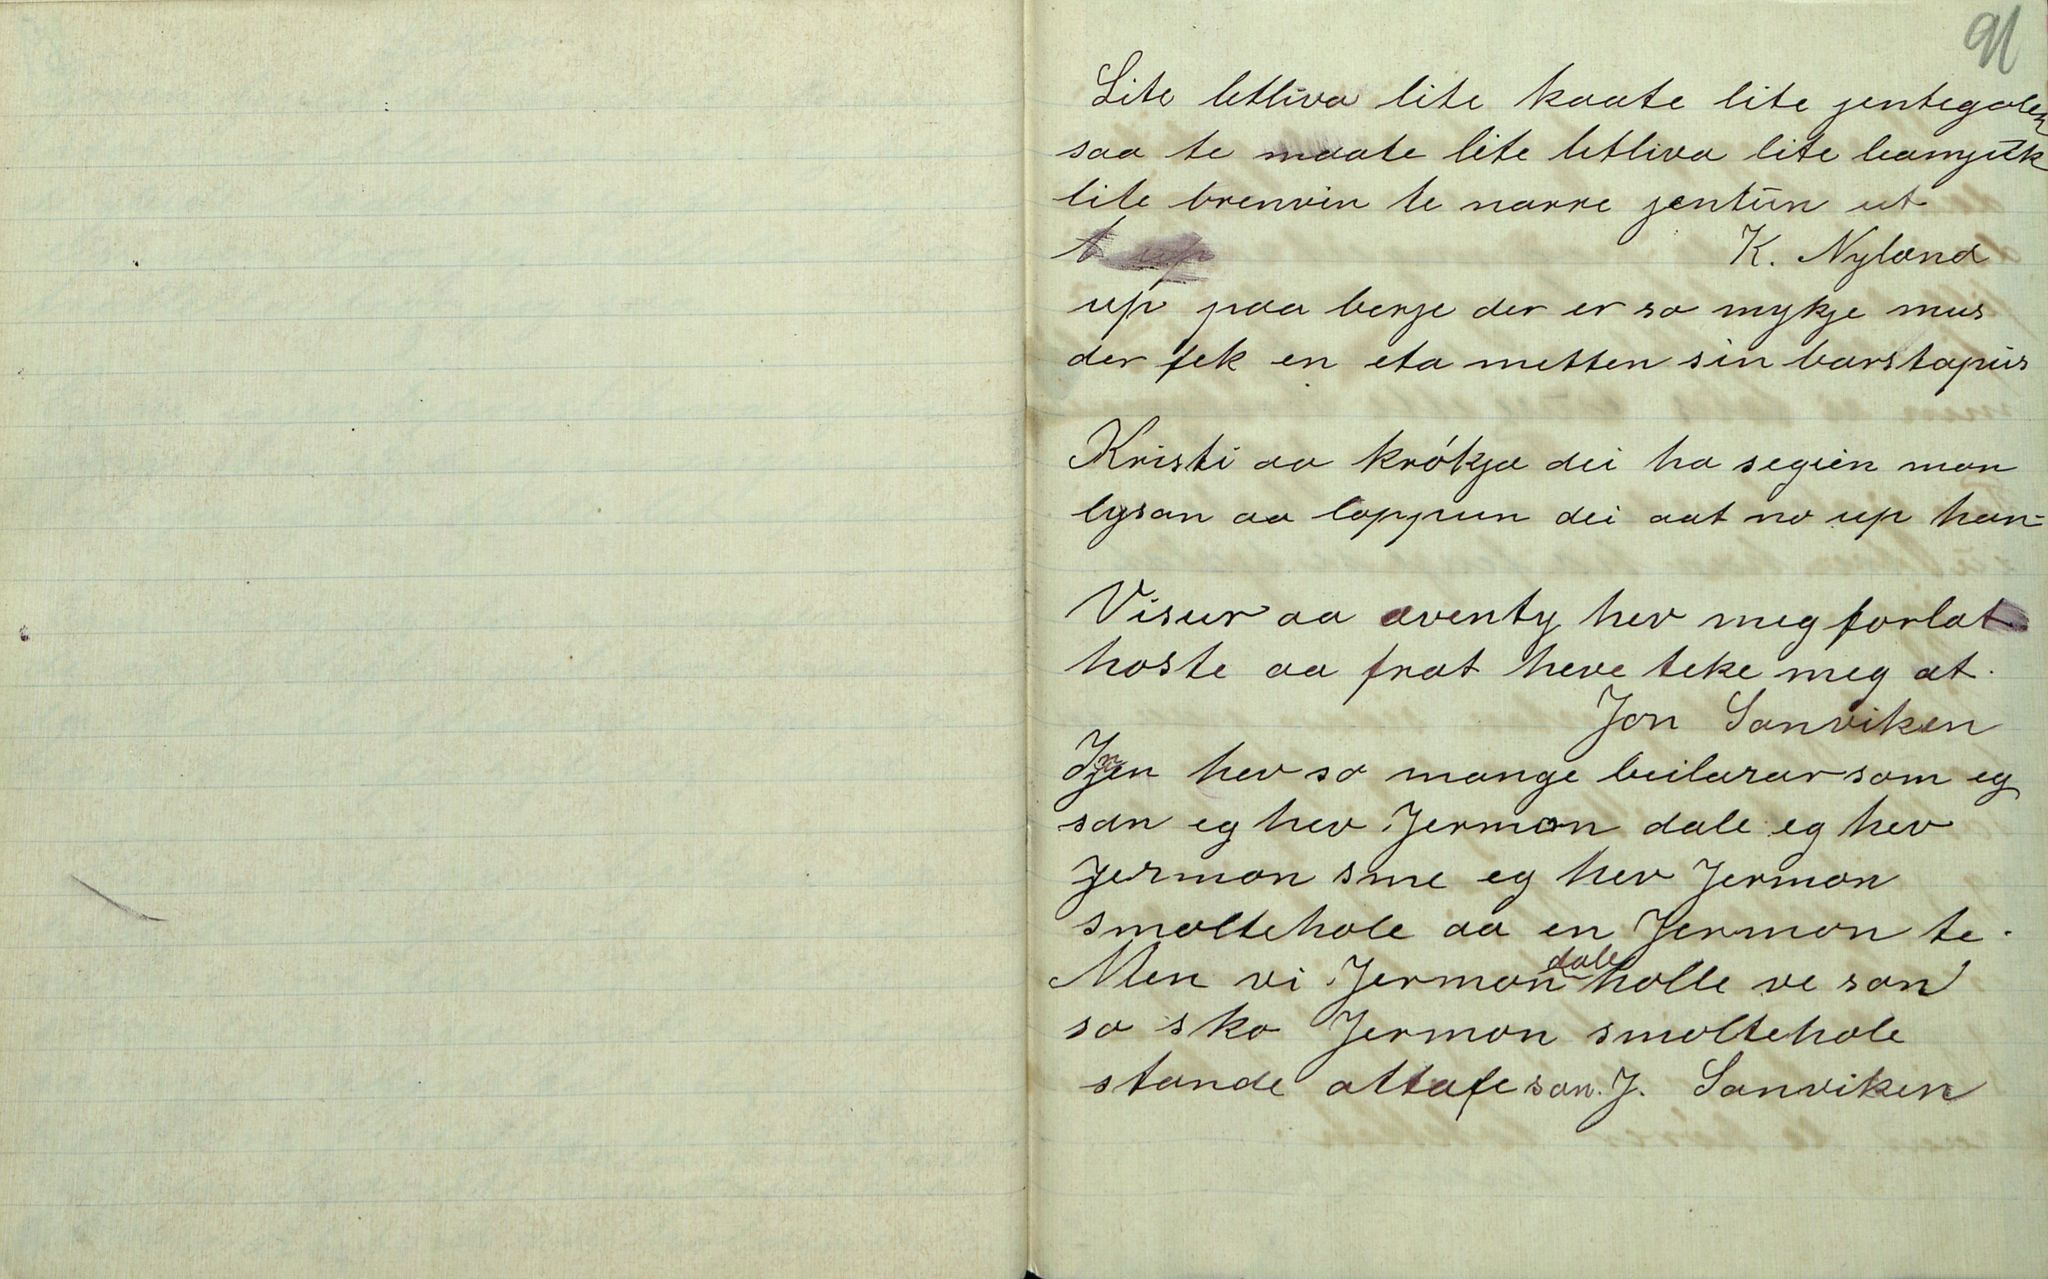 91
Lite letliva lite kaate lite jentegalen
saa te maate lite letliva lite
lite brenvin te narre jentun ut
K. Nyland
up paa berje der er so mykje mus
der fek en eta metten sin barstapus
Kristi aa krókja dei ha segien man
lysan aa loppun dei aat no up han-
Visur aa aventy hev meg forlat
hoste aa frat heve teke meg at.
Jon Sanviken
Ingen hev so mange beilarar som eg
san eg hev Jermon dale eg hev
Jermon sme eg hev Jermon
smoltehole aa en Jermon te.
Men vi Jermon dale holle ve san
so sko Jermon smoltehole
stande attafe san. J. Sanviken